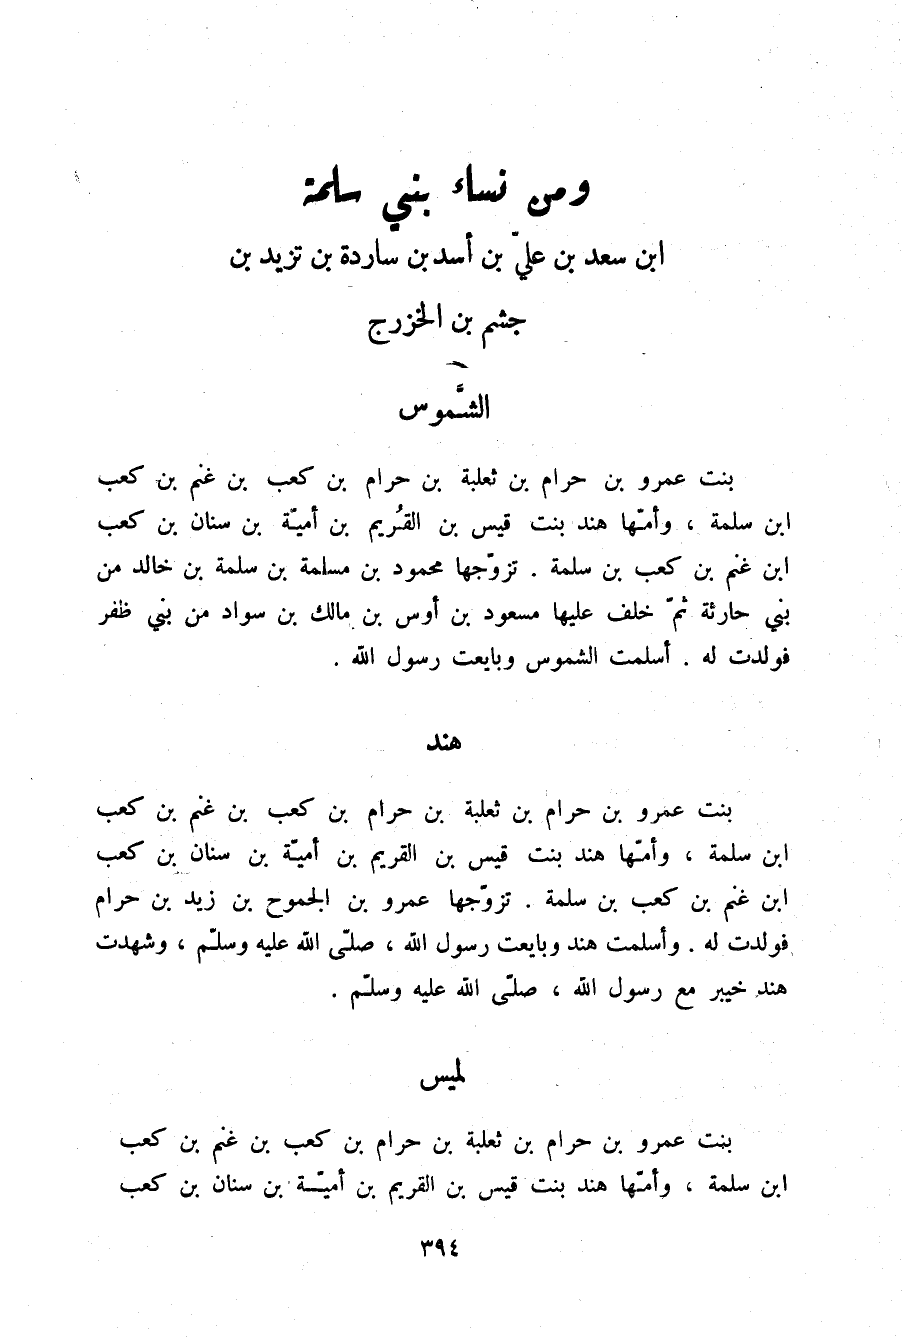 ومن نساء بني سلمة
ابن سعد بن عليّ بن أسد بن ساردة بن تزيد بن
جشم بن الخزرج
الشَّموس
بنت عمرو بن حرام بن ثعلبة بن حرام بن كعب بن غنم بن كعب
ابن سلمة ، وأمّها هند بنت قيس بن القُريم بن أميّة بن سنان بن كعب
ابن غنم بن كعب بن سلمة . تزوّجها محمود بن مسلمة بن سلمة بن خالد من
بني حارثة ثمّ خلف عليها مسعود بن أوس بن مالك بن سواد من بني ظفر
فولدت له . أسلمت الشموس وبايعت رسول الله .
هند
بنت عمرو بن حرام بن ثعلبة بن حرام بن كعب بن غنم بن كعب
ابن سلمة ، وأمّها هند بنت قيس بن القريم بن أميّة بن سنان بن كعب
ابن غنم بن كعب بن سلمة . تزوّجها عمرو بن الجموح بن زيد بن حرام
فولدت له . وأسلمت هند وبايعت رسول الله ، صلّى الله عليه وسلّم ، وشهدت
هند خيبر مع رسول الله ، صلّى الله عليه وسلّم .
لميس
بنت عمرو بن حرام بن ثعلبة بن حرام بن كعب بن غنم بن كعب
ابن سلمة ، وأمّها هند بنت قيس بن القريم بن أميّة بن سنان بن كعب
٣٩٤